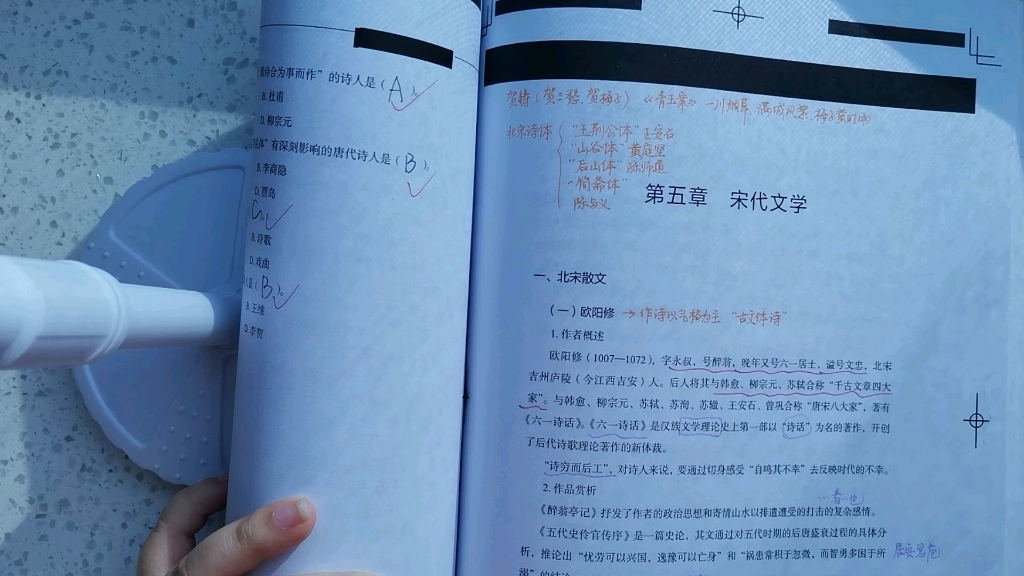 诗合为事而作”的诗人是（A）。
B.杜甫
D.柳宗元
体”有深刻影响的唐代诗人是（B）。
B.李商隐
D.贾岛
C
B.诗歌
D.戏曲
是（B）。
B.王维
D.李贺
贺铸（贺三愁、贺梅子）《青玉案》一川烟草，满城风絮，梅子黄时雨
北宋诗体
“王荆公体”王安石
“山谷体”黄庭坚
“后山体”陈师道
“简斋体”
陈与义
第五章 宋代文学
一、北宋散文
（一）欧阳修→作诗以气格为主 “古文体诗”
1.作者概述
欧阳修（1007—1072），字永叔，号醉翁，晚年又号六一居士，谥号文忠，北宋
吉州庐陵（今江西吉安）人。后人将其与韩愈、柳宗元、苏轼合称“千古文章四大
家”。与韩愈、柳宗元、苏轼、苏洵、苏辙、王安石、曾巩合称“唐宋八大家”，著有
《六一诗话》。《六一诗话》是汉族文学理论史上第一部以“诗话”为名的著作，开创
了后代诗歌理论著作的新体裁。
“诗穷而后工”，对诗人来说，要通过切身感受“自鸣其不幸”去反映时代的不幸。
2.作品赏析
《醉翁亭记》抒发了作者的政治思想和寄情山水以排遣遭受的打击的复杂感情。
《五代史伶官传序》是一篇史论，其文通过对五代时期的后唐盛衰过程的具体分
析，推论出“忧劳可以兴国，逸豫可以亡身”和“祸患常积于忽微，而智勇多困于所
溺”的结论
居安思危